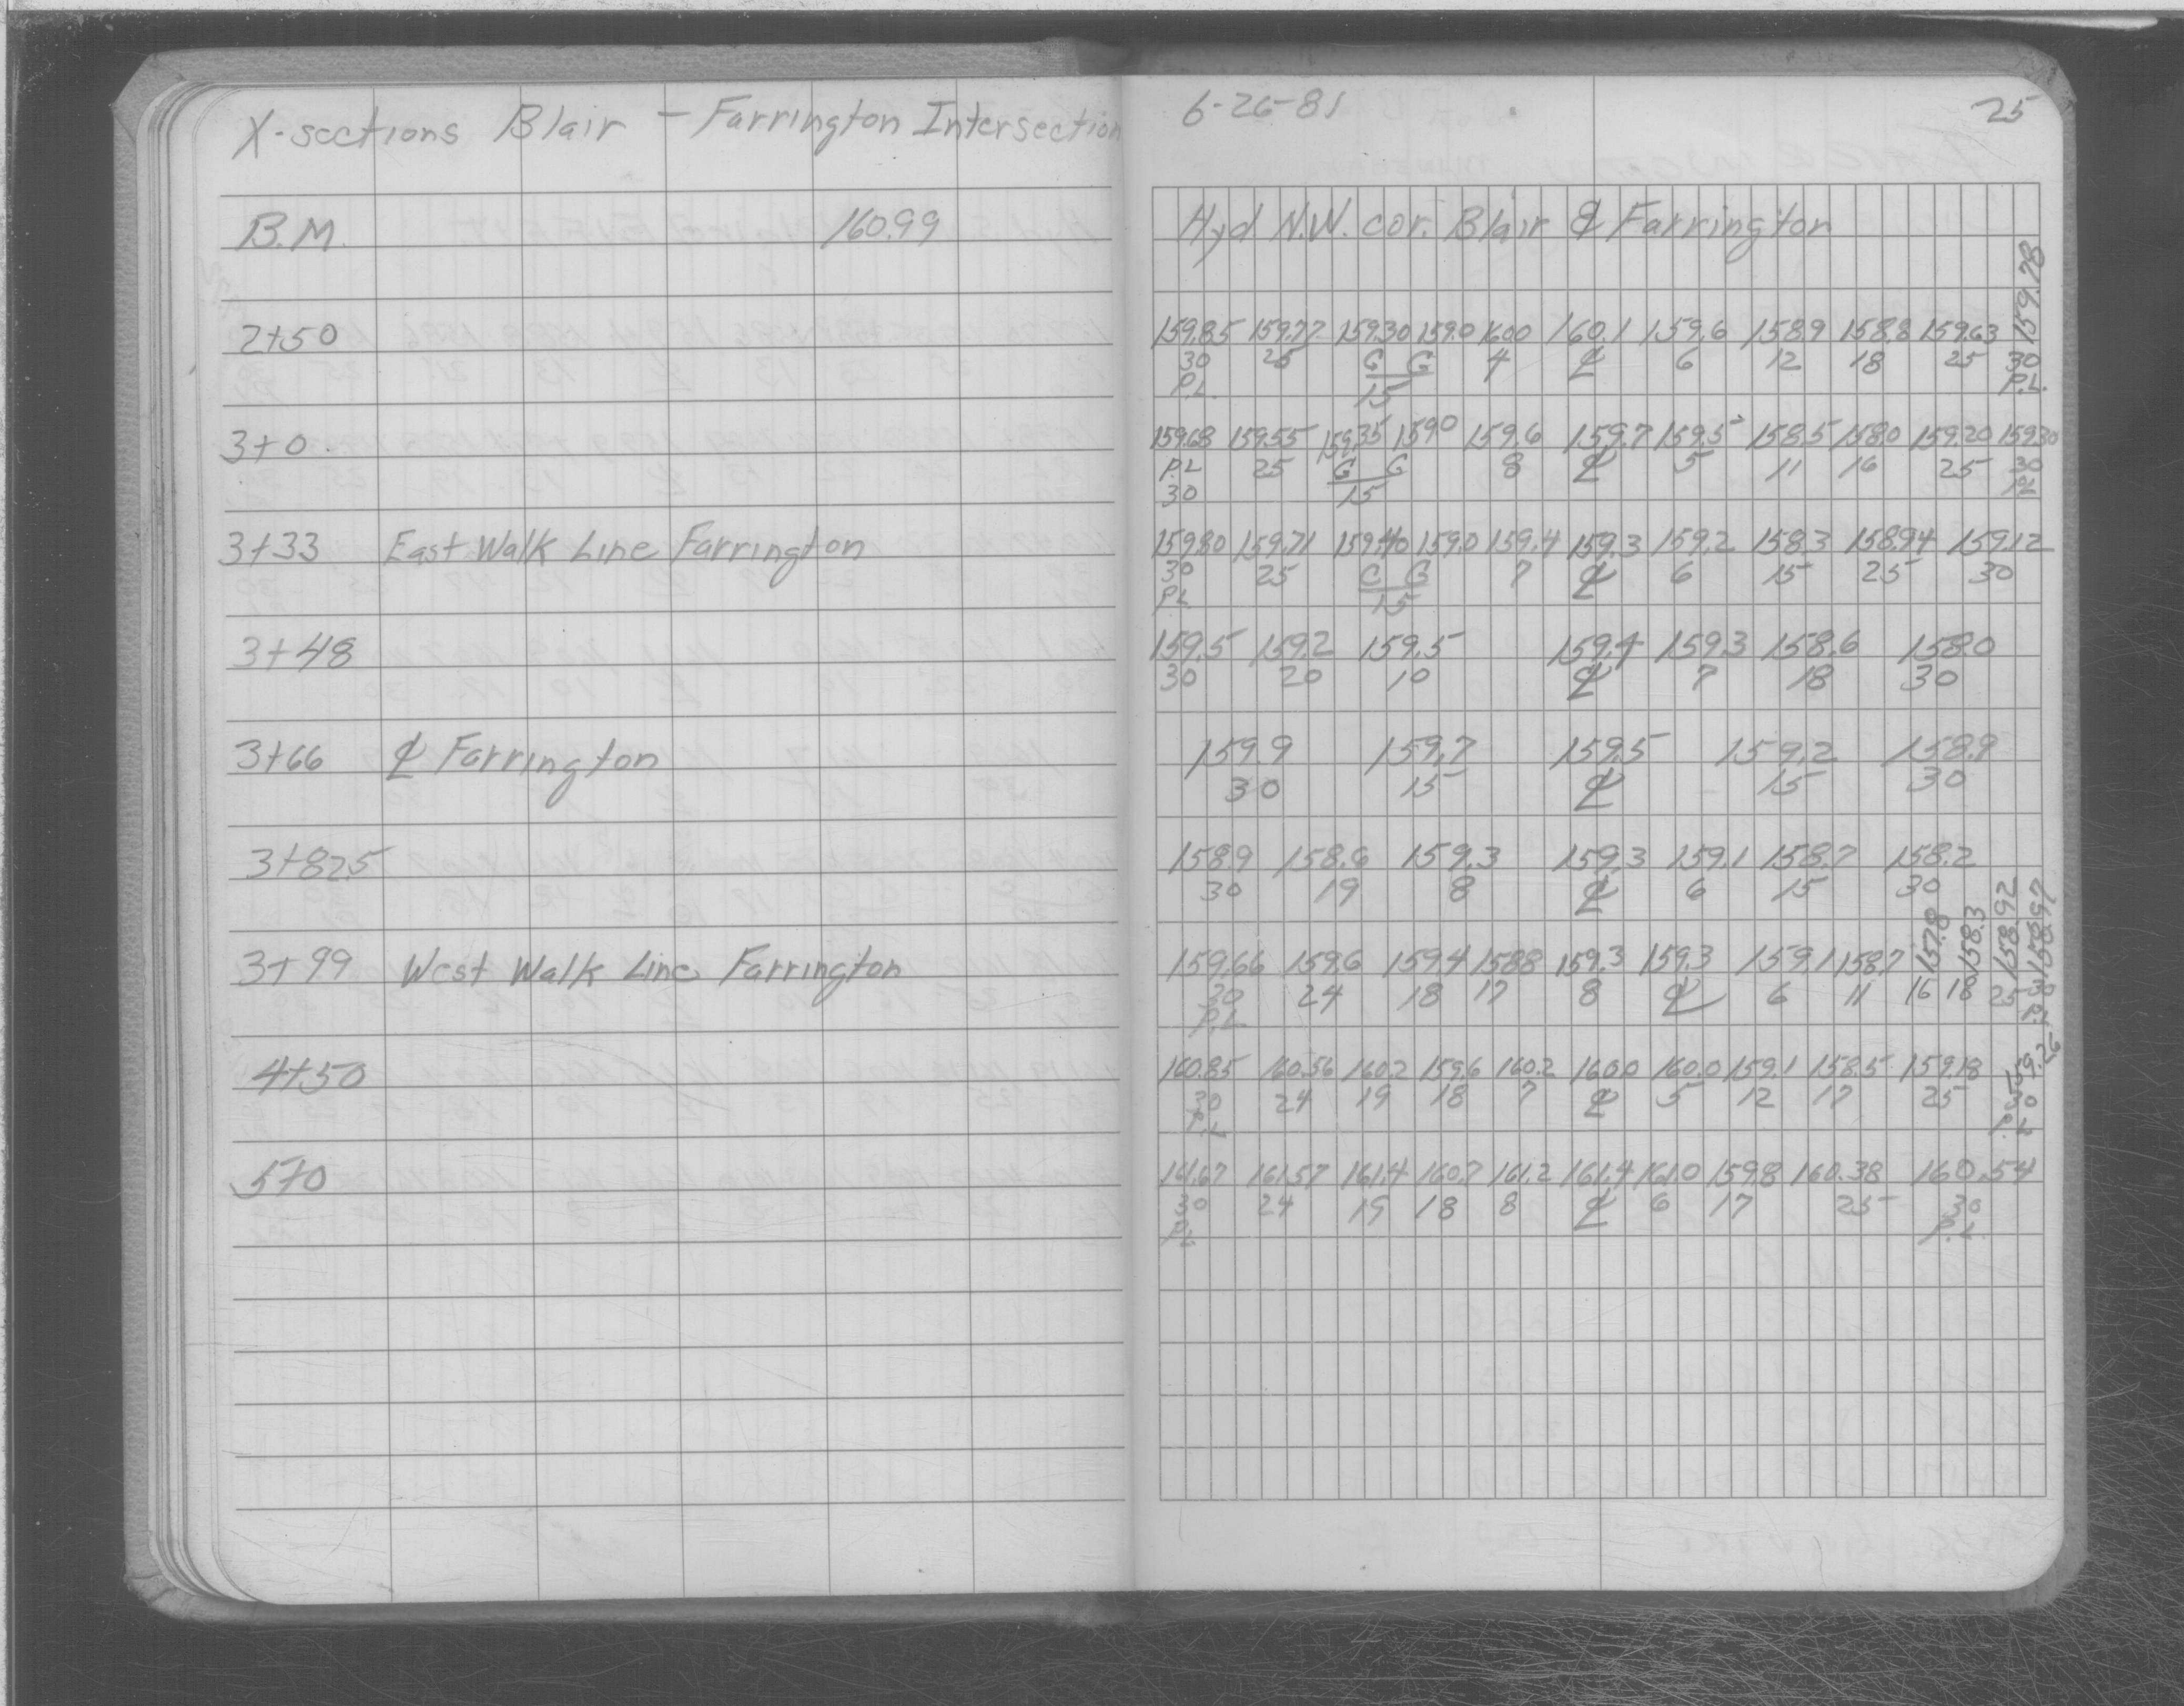 X-sections Blair - Farrington Intersection 6-26-81 25
B.M. 160.99 Hyd N.W. cor. Blair & Farrington
2+50 159.85 159.77 159.30 159.0 160.0 160.1 159.6 158.9 158.8 159.63 159.78
30 25 C G 4 ℄ 6 12 18 25 30
P.L. 15 P.L.
3+0 159.68 159.55 159.35 159.0 159.6 159.7 159.5 158.5 158.0 159.20 159.30
P.L 25 C G 8 ℄ 5 11 16 25 30
30 15 P.L
3+33 East Walk Line Farrington 159.80 159.71 159.40 159.0 159.4 159.3 159.2 158.3 158.94 159.12
30 25 C G 7 ℄ 6 15 25 30
P.L 15
3+48 159.5 159.2 159.5 159.4 159.3 158.6 158.0
30 20 10 ℄ 7 18 30
3+66 ℄ Farrington 159.9 159.7 159.5 159.2 158.9
30 15 ℄ 15 30
3+82.5 158.9 158.6 159.3 159.3 159.1 158.7 158.2
30 19 8 ℄ 6 15 30
3+99 West Walk Line Farrington 159.66 159.6 159.4 158.8 159.3 159.3 159.1 158.7 157.8 158.3 158.92 158.97
30 24 18 17 8 ℄ 6 11 16 18 25 30
P.L P.L.
4+50 160.85 160.56 160.2 159.6 160.2 160.0 160.0 159.1 158.5 159.18 159.26
30 24 19 18 7 ℄ 5 12 17 25 30
P.L P.L
5+0 161.67 161.57 161.4 160.7 161.2 161.4 161.0 159.8 160.38 160.54
30 24 19 18 8 ℄ 6 17 25 30
P.L P.L.